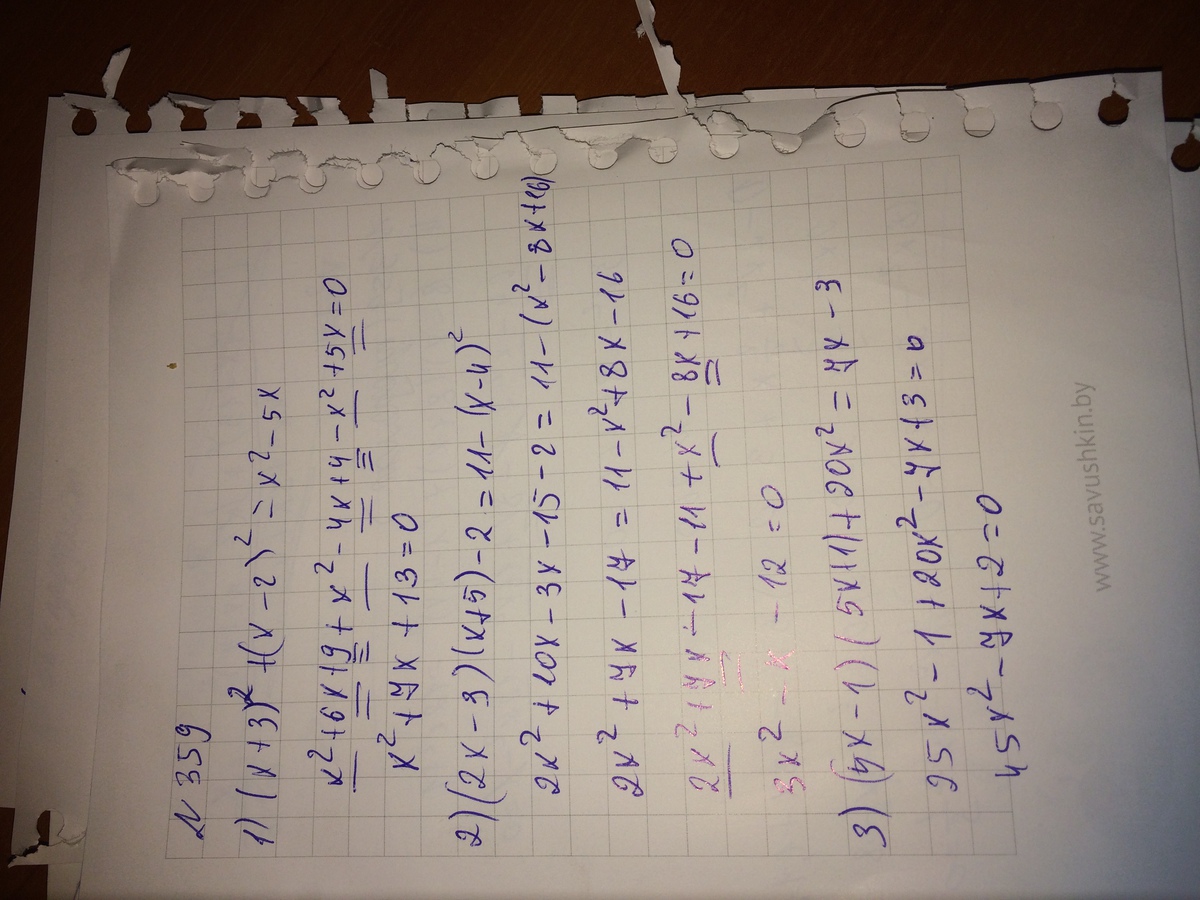 N 359
1) (x+3)² + (x-2)² = x² - 5x
x² + 6x + 9 + x² - 4x + 4 - x² + 5x = 0
x² + 7x + 13 = 0
2) (2x - 3)(x+5) - 2 = 11 - (x-4)²
2x² + 10x - 3x - 15 - 2 = 11 - (x² - 8x + 16)
2x² + 7x - 17 = 11 - x² + 8x - 16
2x² + 7x - 17 - 11 + x² - 8x + 16 = 0
3x² - x - 12 = 0
3) (5x - 1)(5x+1) + 20x² = 7x - 3
25x² - 1 + 20x² - 7x + 3 = 0
45x² - 7x + 2 = 0
www.savushkin.by